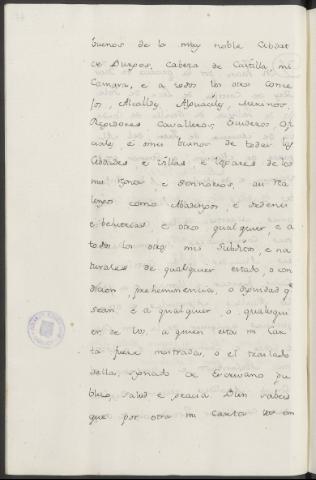 buenos de la muy noble Cibdat
de Burgos, cabeza de Castilla, mi
Camara, e a todos los otros conce
jos, Alcaldes, Alguaciles, Merinos,
Regidores Cavalleros, Escuderos ofi
ciales, e omes buenos de todas las
Cibdades e villas e logares de los
mis regnos e Señorios, asi rea
lengos como Abadengos, e ordenes
e behetrias e otros qualquier, e a
todos los otros mis subditos, e na
turales de qualquier estado o con
dicion, preheminencia, o dignidad qe
sean, e a qualquier, o qualesqui
er de vos, a quien esta mi Car
ta fuere mostrada, o el traslado
della, signado de Escrivano pu
blico, salud e gracia. Bien sabeis
que por otra mi Carta vos en